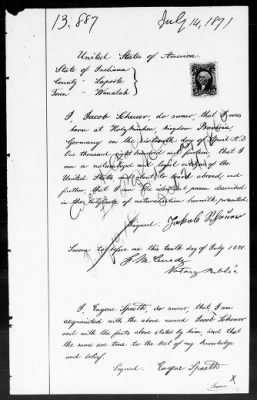 13.887
July 14, 1891
United States of America.
State of Indiana
County " Laporte
Town " Wanatah
I, Jacob Scheuer, do swear, that I was
born at , kingdom Bavaria
Germany on the day of April A.D.
One thousand eight hundred and , that I
am a naturalized and loyal citizen of the
United States and about to travel abroad, and
further that I am the identical person described
in the certificate of naturalization herewith presented.
Signed: Jakob
Sworn to before me this tenth day of July 1891
Notary Public
I, Eugene Spaeth, do swear, that I am
acquainted with the above named Jacob Scheuer
and with the facts above stated by him, and that
the same are true to the best of my knowledge
and belief.
Signed: Eugene Spaeth